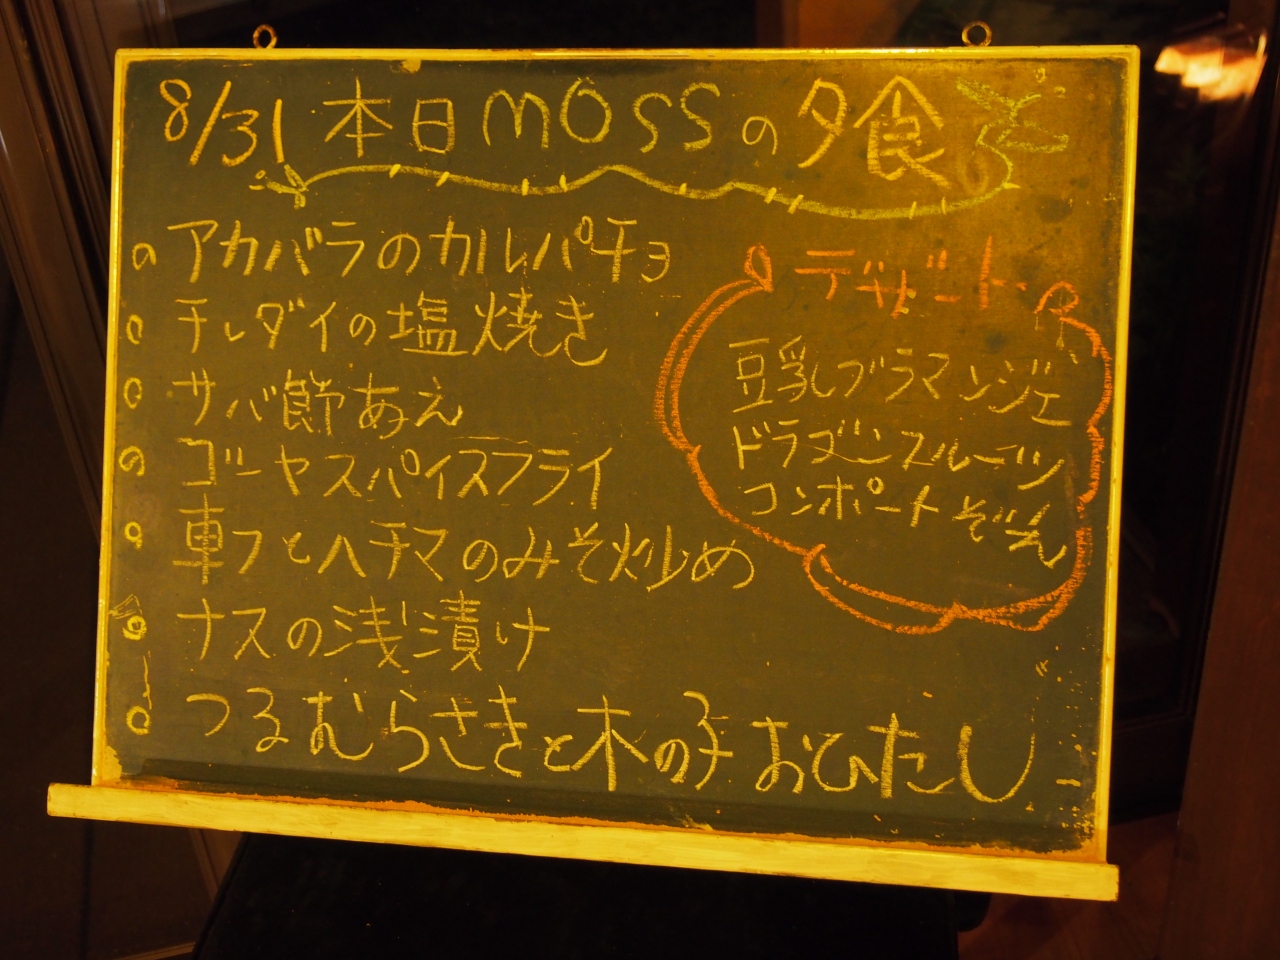 8/31 本日mossの夕食
アカバラのカルパチョ
チレダイの塩焼き
サバ節あえ
ゴーヤスパイスフライ
車フとヘチマのみそ炒め
ナスの浅漬け
つるむらさきと木の子おひたし
デザート
豆乳ブラマンジェ
ドラゴンフルーツ
コンポートぞえ